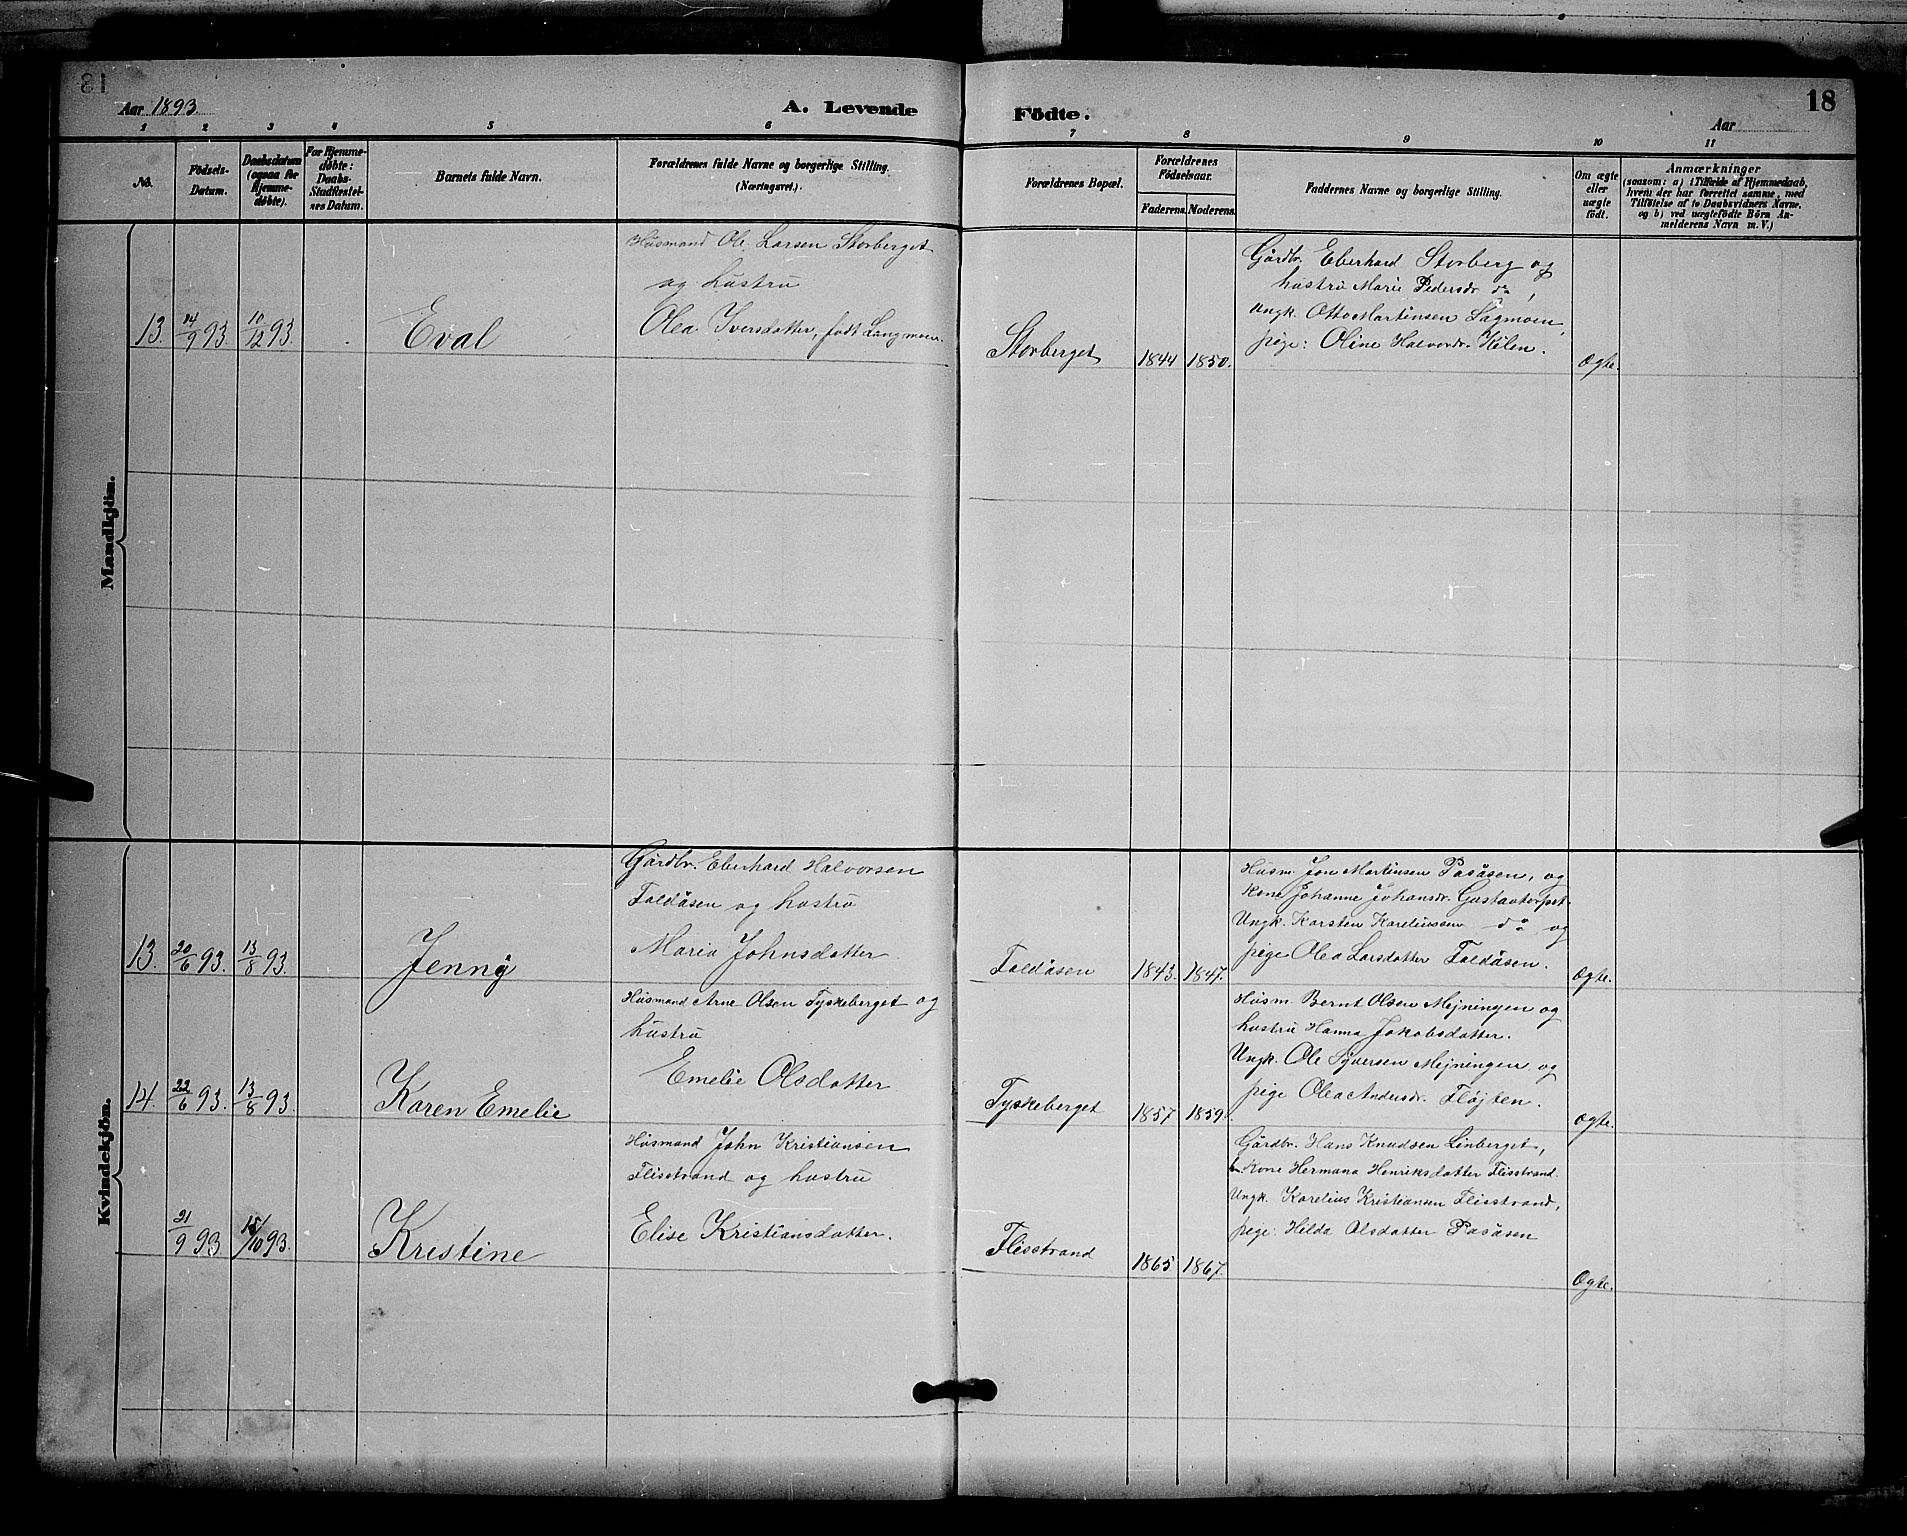 81
Aar 1893.
A. Levende
Födte.
Aar
18
1 2 3 4 5 6 7 8 9 10 11
No.
Födsels-
Datum.
Daabsdatum
(ogsaa for
Hjemme-
døbte).
For Hjemme-
døbte:
Daabs-
Stadfæstel-
ses Datum.
Barnets fulde Navn.
Forældrenes fulde Navne og borgerlige Stilling.
(Næringsvei.)
Forældrenes Bopæl.
Forældrenes
Födselsaar.
Faderens. Moderens.
Faddernes Navne og borgerlige Stilling.
Om ægte
eller
uægte
født.
Anmærkninger
(saasom: a) i Tilfælde af Hjemmedaab,
hvem der har forrettet samme, med
Tilföielse af to Daabsvidners Navne,
og b) ved uægtefödte Börn An-
melderens Navn m. V.)
Mandkjön.
13. 14/9 93. 10/12 93. Eval
Husmand Ole Larsen Storberget
og hustru
Olea Iversdatter, født Langmoen.
Storberget 1844 1850.
Gårdbr. Eberhard Storberg og
hustru Marie Pedersdr. do,
Ungk. Otto Martinsen Sagmoen,
pige: Oline Halvordr. Kilen.
Ægte.
Kvindekjön.
13. 20/6 93. 13/8 93. Jenny
Gårdbr. Eberhard Halvorsen
Faldåsen og hustru
Maria Johnsdatter
Faldåsen 1843. 1847.
Husm. Jon Martinsen Påsåsen, og
Kone Johanne Johansdr. Gustavtorpet.
Ungk. Karsten Kareliussen do og
pige Olea Larsdatter Faldåsen.
Ægte.
14. 22/6 93. 13/8 93. Karen Emelie
Husmand Arne Olsen Tyskeberget og
hustru
Emelie Olsdatter
Tyskeberget 1857 1859.
Husm. Bernt Olsen Mejningen og
hustru Hanna Jakobsdatter.
Ungk. Ole Syversen Mejningen og
pige Olea Andersdr. Fløjten.
Ægte.
21/9 93 15/10 93. Kristine
Husmand John Kristiansen
Flisstrand og hustru
Elise Kristiansdatter.
Flisstrand 1865. 1867.
Gårdbr. Hans Knudsen Linberget,
Kone Hermana Henriksdatter Flisstrand.
Ungk. Karelius Kristiansen Flisstrand,
pige Hilda Olsdatter Påsåsen
Ægte.